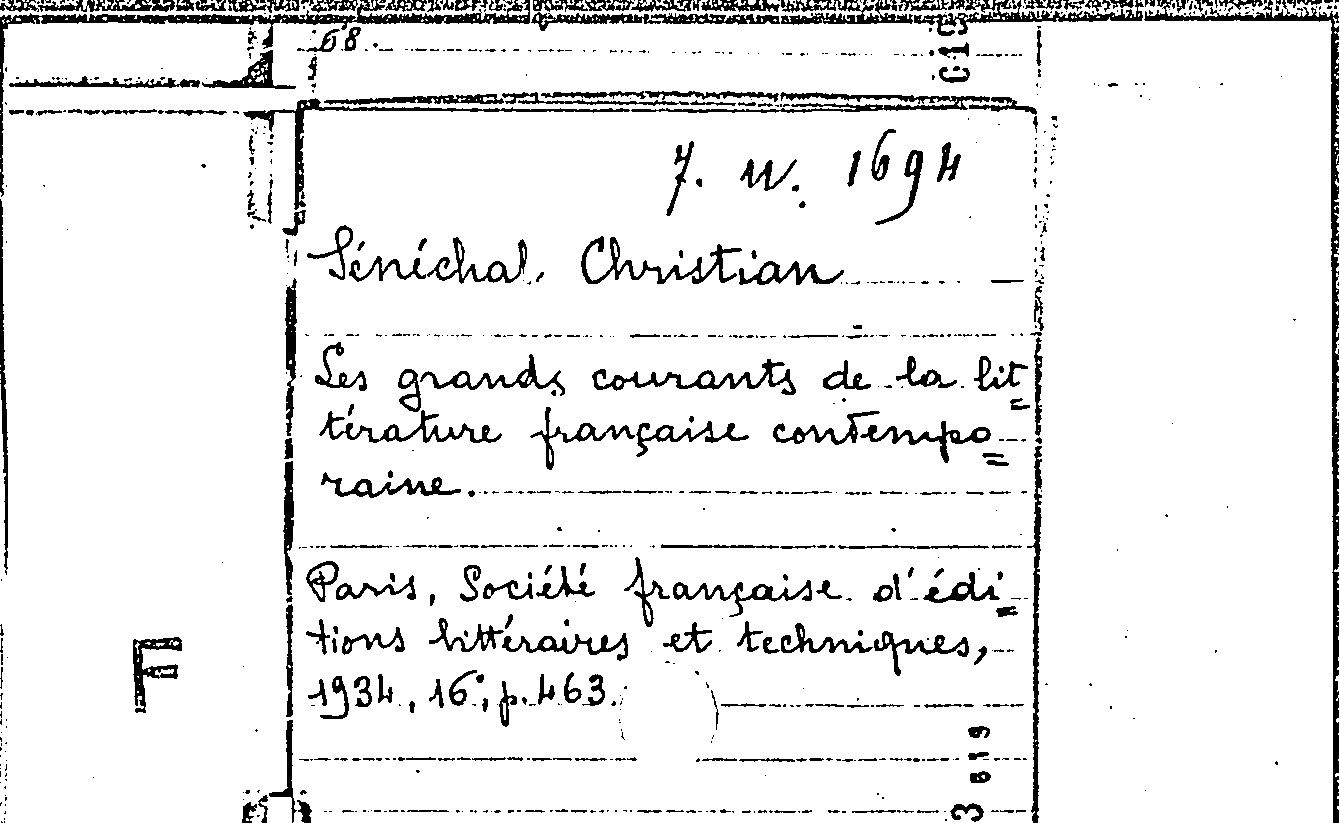 68.
7. W. 1694
Sénéchal, Christian
Les grands courants de la lit=
térature française contempo=
raine.
Paris, Société française d'édi=
tions littéraires et techniques,
1934, 16°, p. 463.
F